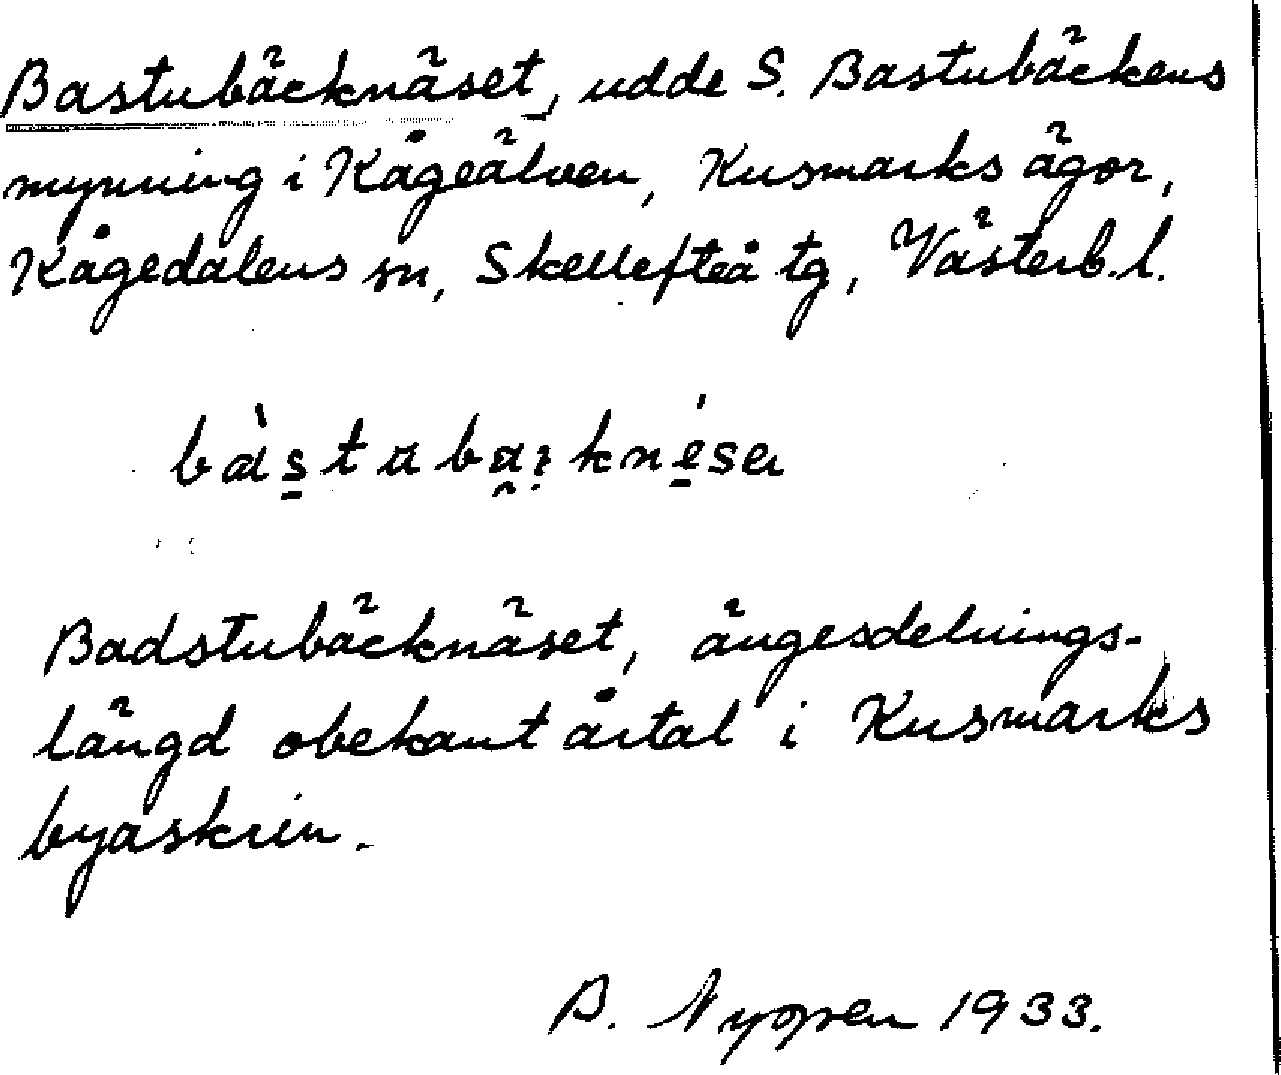 Bastubäcknäset, udde S. Bastubäckens
mynning i Kågeälven, Kusmarks ägor,
Kågedalens sn, Skellefteå tg, Västerb. l.
Badstubäcknäset, ängesdelnings-
längd obekant årtal i Kusmarks
byaskrin.
A. Nyopen 1933.